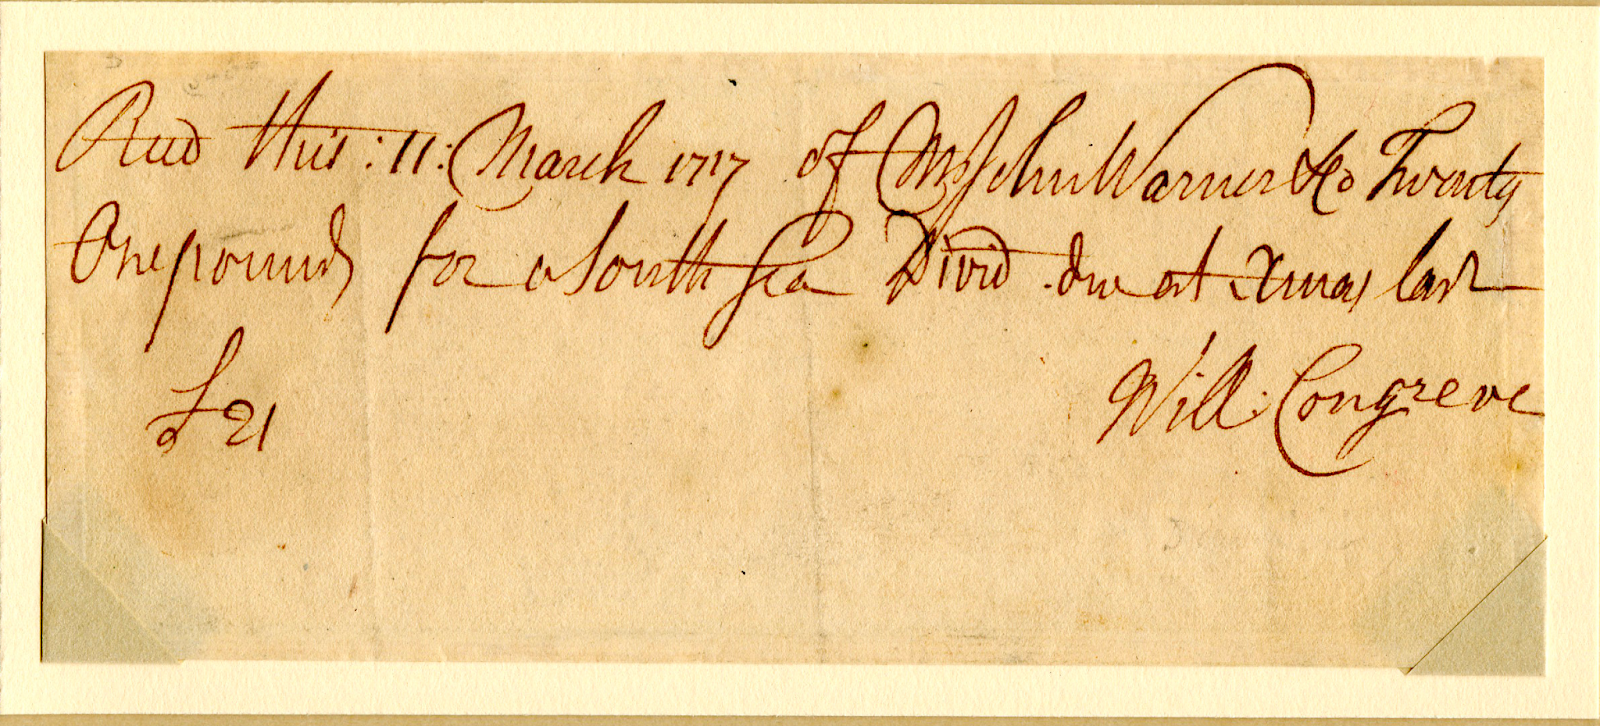 Recd this : 11 : March 1717 of Mr John Warner & Co Twenty
One pounds for a South Sea Divid due at Xmas last
£21 Will: Congreve